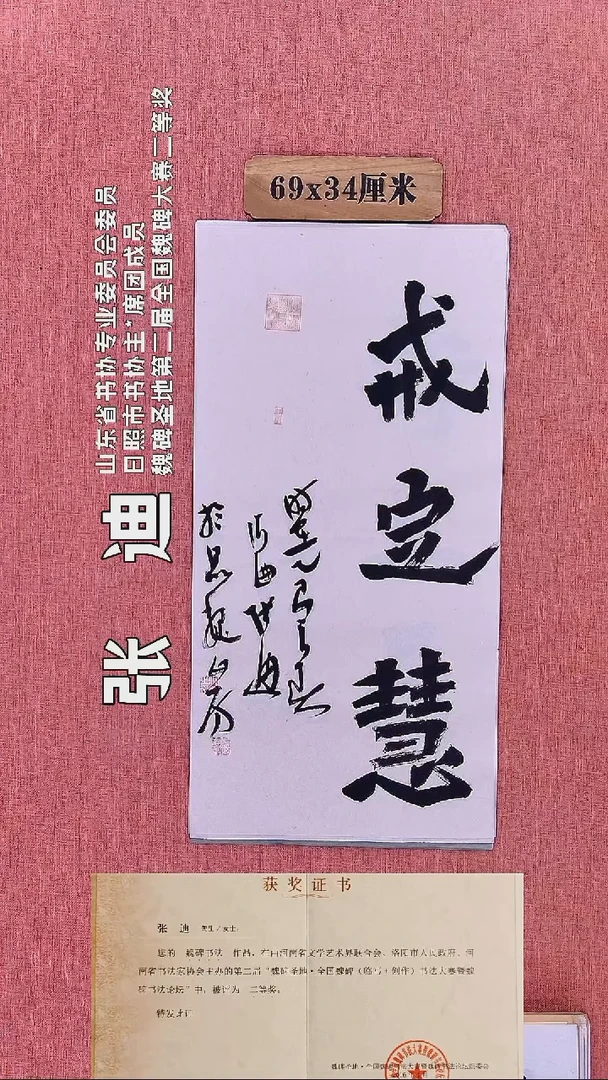 69x34厘米
戒定慧
山东省书协专业委员会委员
日照市书协主*席团成员
魏碑圣地第二届全国魏碑大赛二等奖
张 迪
获奖证书
张 迪 先生/女士:
您的 魏碑书法 作品,在由河南省文学艺术界联合会、洛阳市人民政府、河
南省书法家协会主办的第二届“魏碑圣地·全国魏碑(临写+创作)书法大赛暨魏
碑书法论坛”中,被评为 二等奖。
特发此证